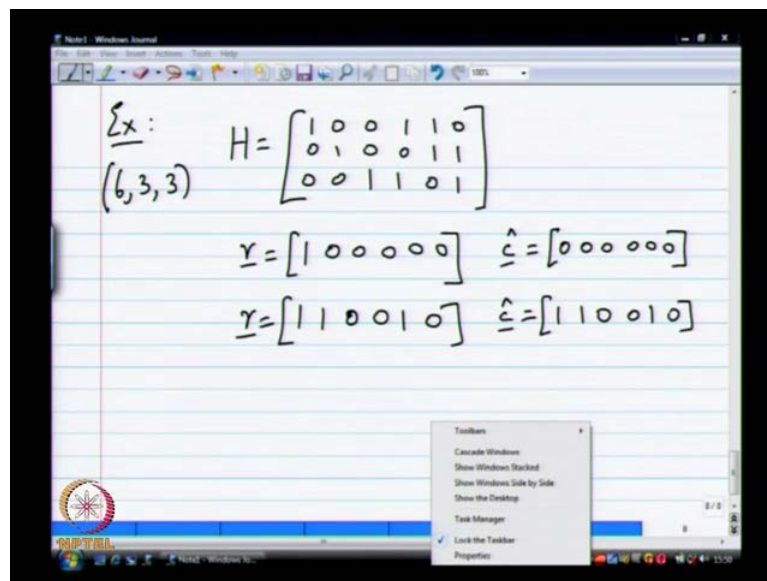 Note1 - Windows Journal
File Edit View Insert Actions Tools Help
100%
Ex :
(6,3,3)
H = [ 1 0 0 1 1 0
0 1 0 0 1 1
0 0 1 1 0 1 ]
r = [1 0 0 0 0 0] ĉ = [0 0 0 0 0 0]
r = [1 1 0 0 1 0] ĉ = [1 1 0 0 1 0]
Toolbars
Cascade Windows
Show Windows Stacked
Show Windows Side by Side
Show the Desktop
Task Manager
Lock the Taskbar
Properties
8/8
8
NPTEL
Note1 - Windows Jo...
15:50